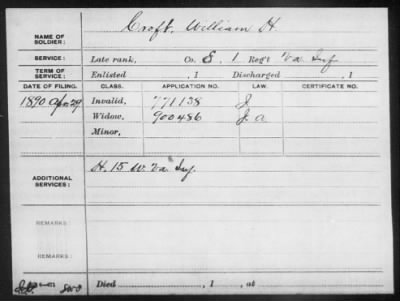 NAME OF SOLDIER: Croft, William H
SERVICE: Late rank, Co. E, 1 Reg't Va Inf
TERM OF SERVICE: Enlisted , 1 Discharged , 1
DATE OF FILING. CLASS. APPLICATION NO. LAW. CERTIFICATE NO.
1890 Apr 29 Invalid, 771138 J
Widow, 900486 J. a
Minor,
ADDITIONAL SERVICES: H. 15 W. Va. Inf.
REMARKS:
REMARKS:
Died , 1 , at